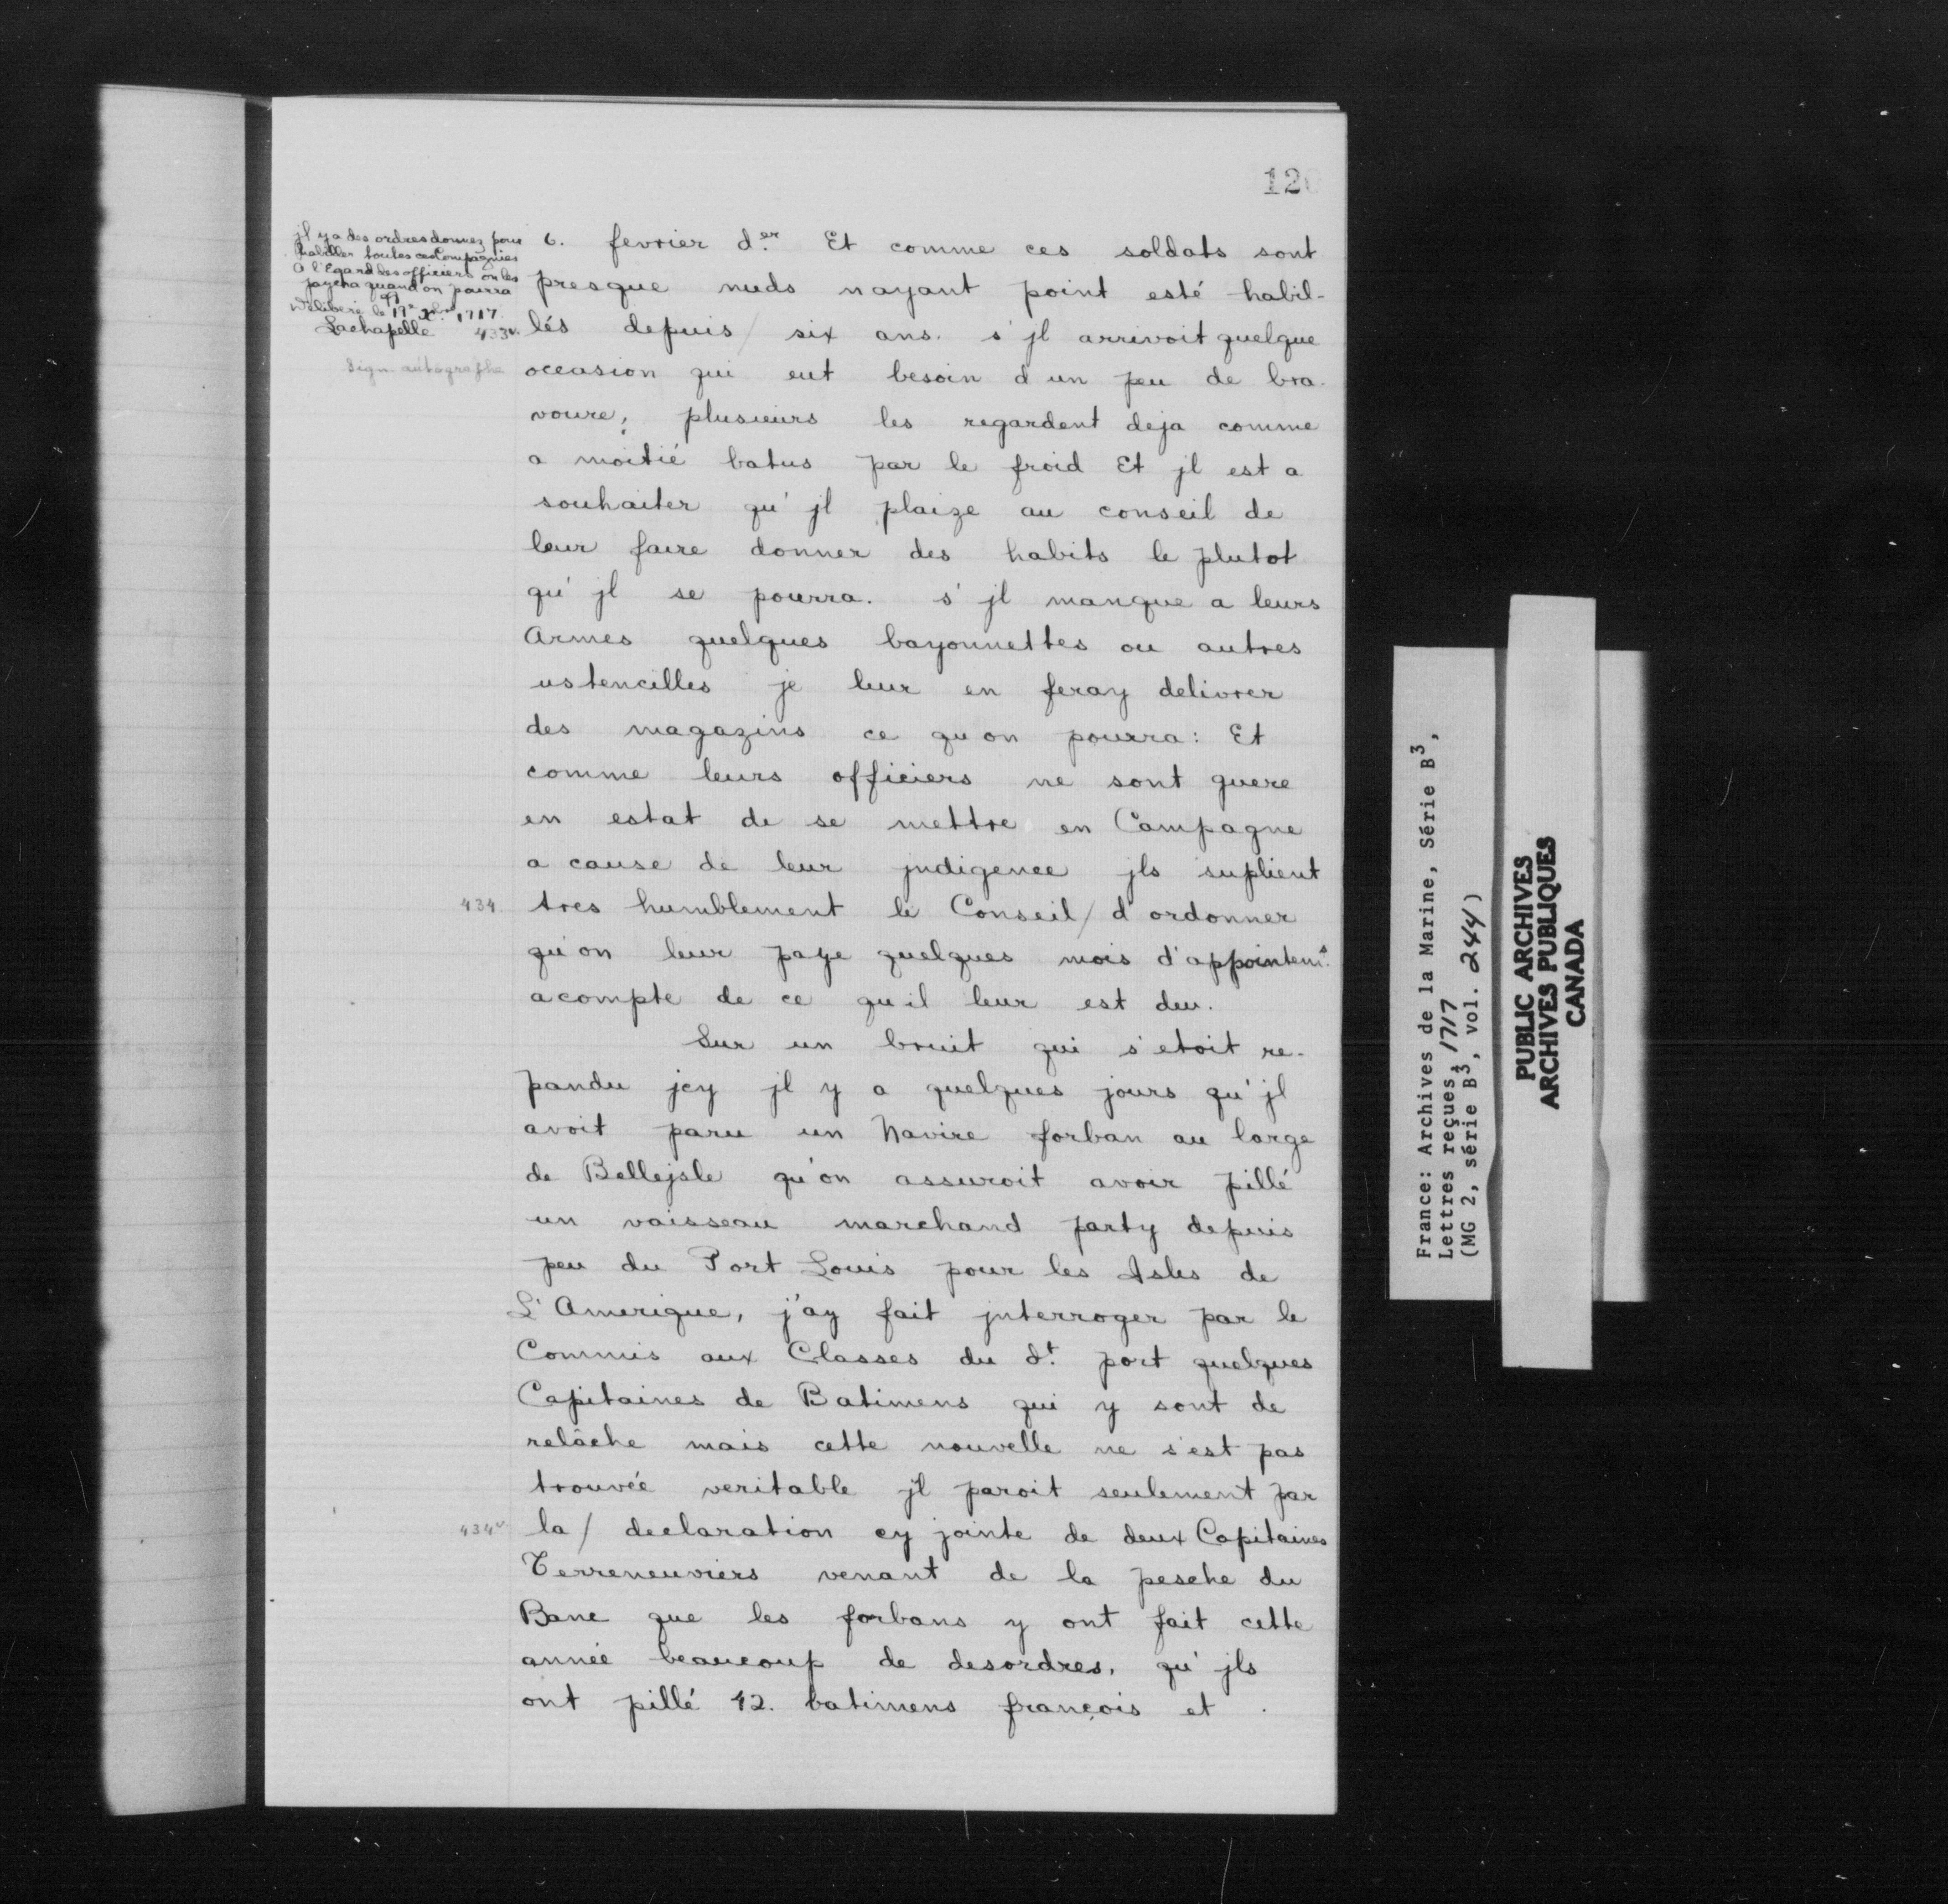 120
jl y a des ordres donnez pour
habiller toutes ces Compagnies
a l'Egard des officiers on les
payera quand on pourra
Delibéré le 19e xbre 1717.
Lachapelle 433v.
Sign. autographe
6. fevrier d.er Et comme ces soldats sont
presque nuds nayant point esté habil-
lés depuis / six ans. s'jl arrivoit quelque
occasion qui eut besoin d'un peu de bra-
voure, plusieurs les regardent deja comme
a moitié batus par le froid Et jl est a
souhaiter qu'jl plaize au conseil de
leur faire donner des habits le plutot
qu'jl se pourra. s'jl manque a leurs
Armes quelques bayonnettes ou autres
ustencilles je leur en feray delivrer
des magazins ce qu'on pourra : Et
comme leurs officiers ne sont guere
en estat de se mettre en Campagne
a cause de leur jndigence jls suplient
434. tres humblement le Conseil / d'ordonner
qu'on leur paye quelques mois d'appointem.ts
acompte de ce qu'il leur est deu.
Sur un bruit qui s'etoit re-
pandu jcy jl y a quelques jours qu'jl
avoit paru un Navire forban au large
de Bellejsle qu'on assuroit avoir pillé
un vaisseau marchand party depuis
peu du Port Louis pour les Isles de
L'Amerique, j'ay fait jnterroger par le
Commis aux Classes du d.t port quelques
Capitaines de Batimens qui y sont de
relâche mais cette nouvelle ne s'est pas
trouvée veritable jl paroit seulement par
434v la / declaration cy jointe de deux Capitaines
Terreneuviers venant de la pesche du
Banc que les forbans y ont fait cette
année beaucoup de desordres, qu'jls
ont pillé 42. batimens françois et
France: Archives de la Marine, Série B3,
Lettres reçues, 1717
(MG 2, série B3, vol. 244)
PUBLIC ARCHIVES
ARCHIVES PUBLIQUES
CANADA